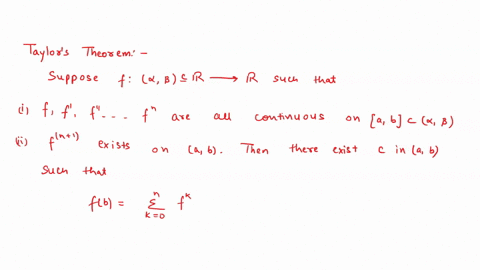 Taylor's Theorem:-
Suppose f: (α, β) ⊆ ℝ ⟶ ℝ such that
(i) f, f', f'' ... fⁿ are all continuous on [a, b] ⊂ (α, β)
(ii) f⁽ⁿ⁺¹⁾ exists on (a, b). Then there exist c in (a, b)
such that
f(b) = ∑ₖ₌₀ⁿ fᵏ